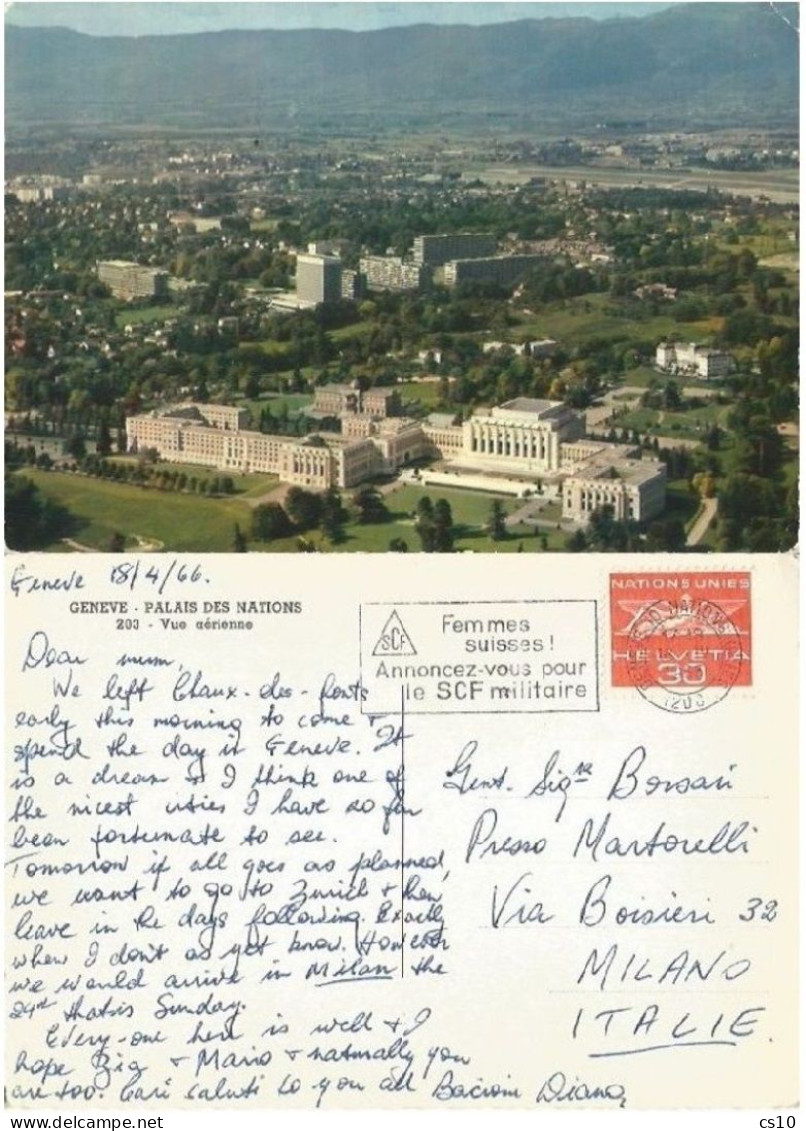 Geneve 18/4/66.
GENEVE - PALAIS DES NATIONS
203 - Vue aérienne
Dear mum,
We left Chaux-des-fonts
early this morning to come +
spend the day in Geneve. It
is a dream + I think one of
the nicest cities I have so far
been fortunate to see.
Tomorrow if all goes as planned,
we want to go to Zurich + then
leave in the days following. Exactly
when I don't as yet know. However
we would arrive in Milan the
24rd thats Sunday.
Every-one here is well + I
hope Gig + Mario + naturally you
are too. Cari saluti to you all Bacioni Diana
SCF
Femmes
suisses!
Annoncez-vous pour
le SCF militaire
NATIONS UNIES
HELVETIA
30
NATIONS
Gent. Sigra Borsari
Presso Martorelli
Via Boisieri 32
MILANO
ITALIE
cs10